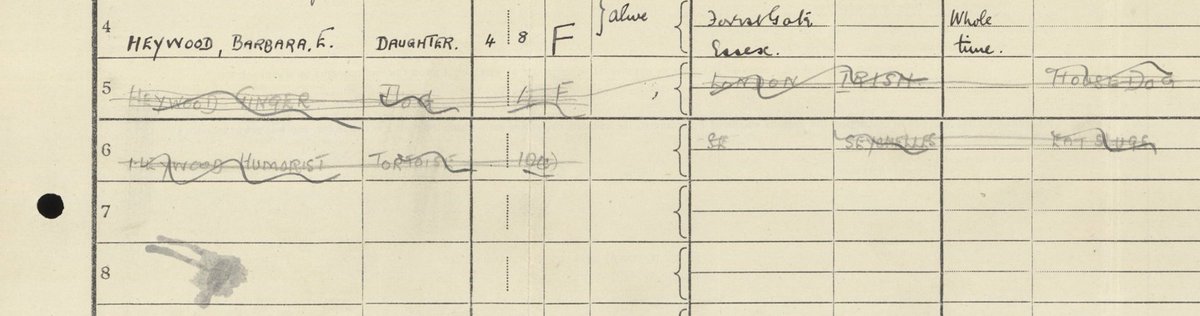 alive
4
HEYWOOD, BARBARA. E. DAUGHTER. 4 8 F
Forest Gate
Essex.
Whole
time.
5
HEYWOOD GINGER DOG F LONDON IRISH HOUSE DOG
6
HEYWOOD HUMORIST TORTOISE 100 SE SEYCHELLES EAT SLUGS
7
8